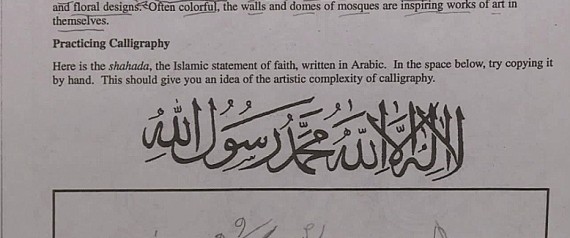 and floral designs. Often colorful, the walls and domes of mosques are inspiring works of art in
themselves.
Practicing Calligraphy
Here is the shahada, the Islamic statement of faith, written in Arabic. In the space below, try copying it
by hand. This should give you an idea of the artistic complexity of calligraphy.
لا إله إلا الله محمد رسول الله